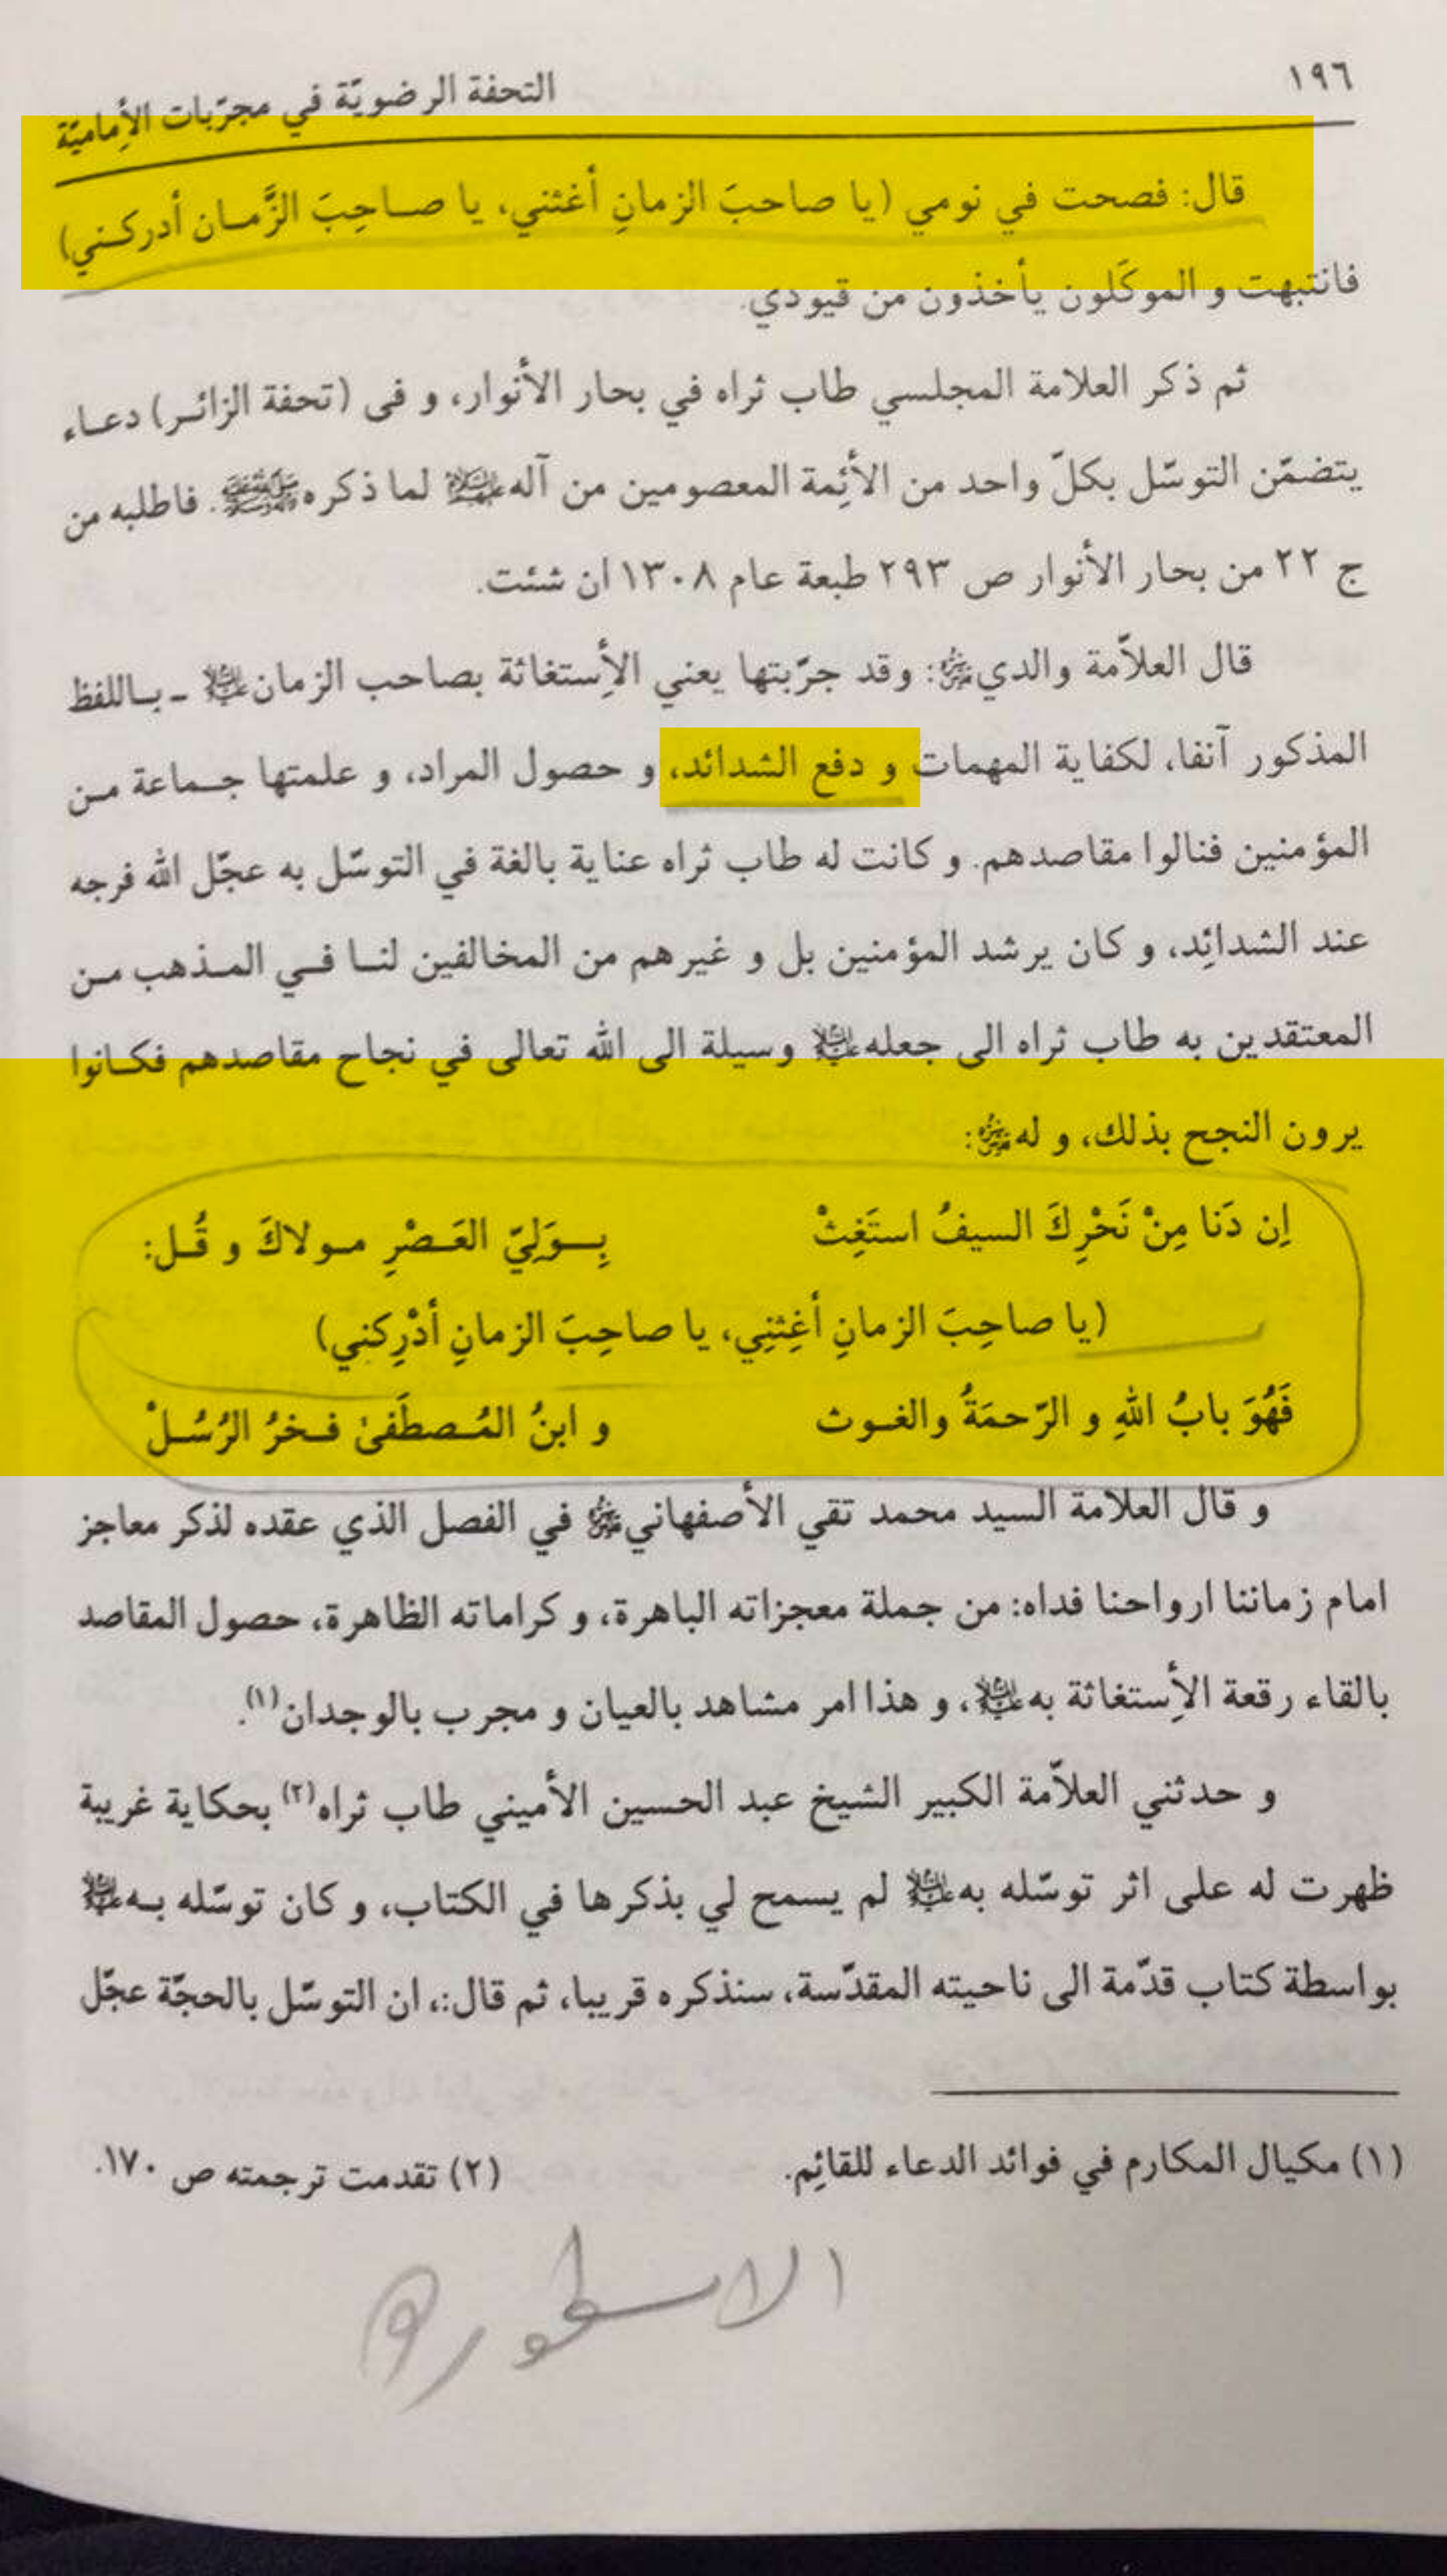 ١٩٦
التحفة الرضويّة في مجرّبات الأِماميّة
قال: فصحت في نومي (يا صاحبَ الزمانِ أغثني، يا صاحِبَ الزَّمان أدركني)
فانتبهت و الموكَلون يأخذون من قيودي.
ثم ذكر العلامة المجلسي طاب ثراه في بحار الأنوار، و فى (تحفة الزائر) دعاء
يتضمّن التوسّل بكلّ واحد من الأئِمة المعصومين من آله عليهم السلام لما ذكره صلى الله عليه وآله وسلم. فاطلبه من
ج ٢٢ من بحار الأنوار ص ٢٩٣ طبعة عام ١٣٠٨ ان شئت.
قال العلاّمة والدي قدس سره: وقد جرّبتها يعني الأِستغاثة بصاحب الزمان عليه السلام ـ باللفظ
المذكور آنفا، لكفاية المهمات و دفع الشدائد، و حصول المراد، و علمتها جماعة من
المؤمنين فنالوا مقاصدهم. و كانت له طاب ثراه عناية بالغة في التوسّل به عجّل الله فرجه
عند الشدائِد، و كان يرشد المؤمنين بل و غيرهم من المخالفين لنا في المذهب من
المعتقدين به طاب ثراه الى جعله عليه السلام وسيلة الى الله تعالى في نجاح مقاصدهم فكانوا
يرون النجح بذلك، و له قدس سره:
اِن دَنا مِنْ نَحْرِكَ السيفُ استَغِثْ بِوَلِيّ العَصْرِ مولاكَ و قُل:
(يا صاحِبَ الزمانِ أغِثنِي، يا صاحِبَ الزمانِ أدْرِكني)
فَهُوَ بابُ اللهِ و الرّحمَةُ والغوث و ابنُ المُصطَفىٰ فخرُ الرُسُلْ
و قال العلامة السيد محمد تقي الأصفهاني قدس سره في الفصل الذي عقده لذكر معاجز
امام زماننا ارواحنا فداه: من جملة معجزاته الباهرة، و كراماته الظاهرة، حصول المقاصد
بالقاء رقعة الأِستغاثة به عليه السلام، و هذا امر مشاهد بالعيان و مجرب بالوجدان(١).
و حدثني العلاّمة الكبير الشيخ عبد الحسين الأميني طاب ثراه(٢) بحكاية غريبة
ظهرت له على اثر توسّله به عليه السلام لم يسمح لي بذكرها في الكتاب، و كان توسّله به عليه السلام
بواسطة كتاب قدّمة الى ناحيته المقدّسة، سنذكره قريبا، ثم قال:، ان التوسّل بالحجّة عجّل
(١) مكيال المكارم في فوائد الدعاء للقائِم.
(٢) تقدمت ترجمته ص ١٧٠.
الاسطوره